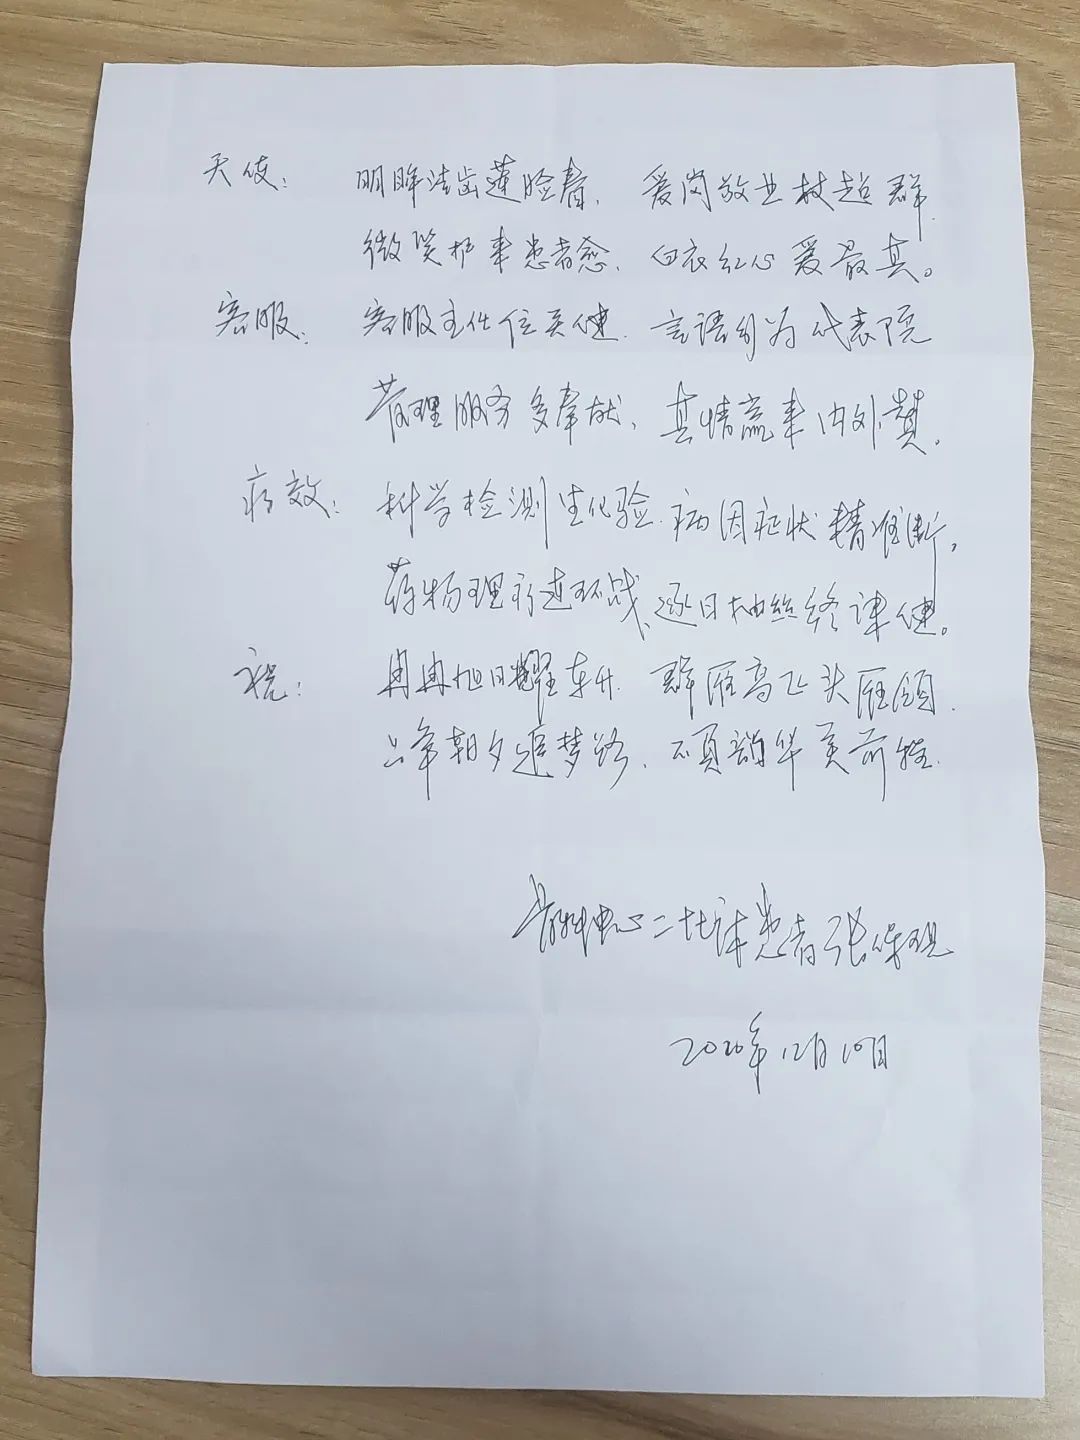 天使： 明眸洁齿莲脸春，爱岗敬业技超群
微笑护来患者愈，白衣红心爱最真。
客服： 客服主任位关健，言语行为代表院
管理服务多奉献，真情赢来内外赞。
疗效： 科学检测生化验，病因症状精准断，
药物理疗连环战，逐日抽丝终康健。
祝： 冉冉旭日耀东升，群雁高飞头雁领，
只争朝夕追梦路，不负韶华美前程
中心二十七床患者张保观
2020年12月10日